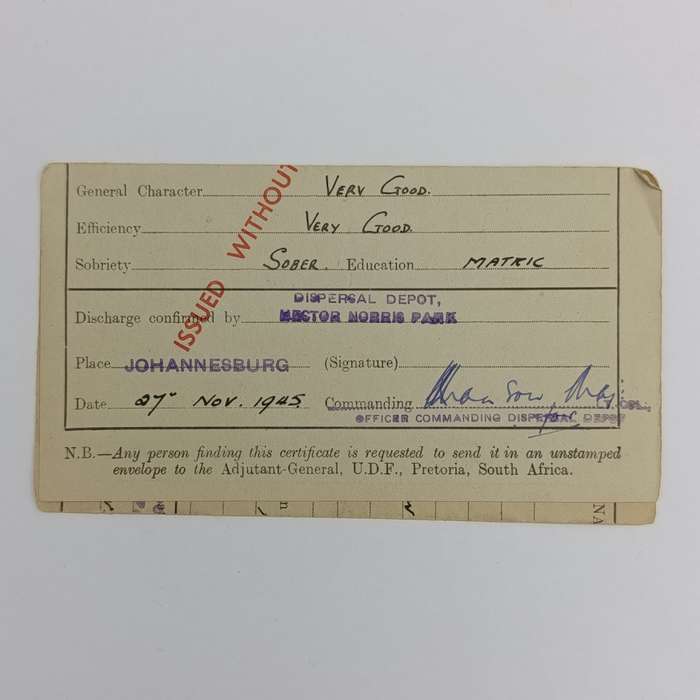 General Character VERY GOOD.
Efficiency VERY GOOD.
Sobriety SOBER. Education MATRIC
ISSUED WITHOUT
DISPERSAL DEPOT,
Discharge confirmed by HECTOR NORRIS PARK
Place JOHANNESBURG (Signature)
Date 27 NOV. 1945 Commanding
LT.-COL.,
OFFICER COMMANDING DISPERSAL DEPOT
N.B.—Any person finding this certificate is requested to send it in an unstamped
envelope to the Adjutant-General, U.D.F., Pretoria, South Africa.